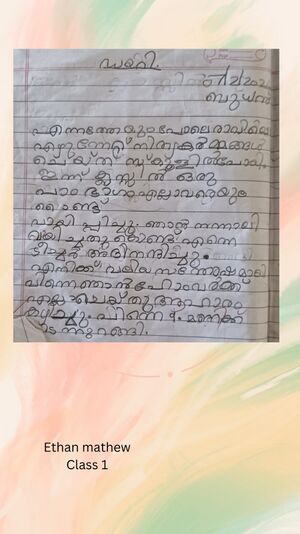 ഡയറി.
ബുധൻ
എന്നത്തേയുംപോലെ രാവിലെ
എഴുന്നേറ്റ് നിത്യകർമ്മങ്ങൾ
ചെയ്ത് സ്കൂളിൽപോയി.
ഇന്ന് ക്ലാസ്സിൽ ഒരു
പാഠ ഭാഗം എല്ലാവരെയും
കൊണ്ട്
വായിപ്പിച്ചു. ഞാൻ നന്നായി
വായിച്ചതുകൊണ്ട് എന്നെ
ടീച്ചർ അഭിനന്ദിച്ചു.
എനിക്ക് വലിയ സന്തോഷമായി
പിന്നെ ഞാൻ ഹോംവർക്ക്
എല്ലാം ചെയ്തു ആഹാരം
കഴിച്ചു. പിന്നെ 9 മണിക്ക്
കിടന്നുറങ്ങി.
Ethan mathew
Class 1